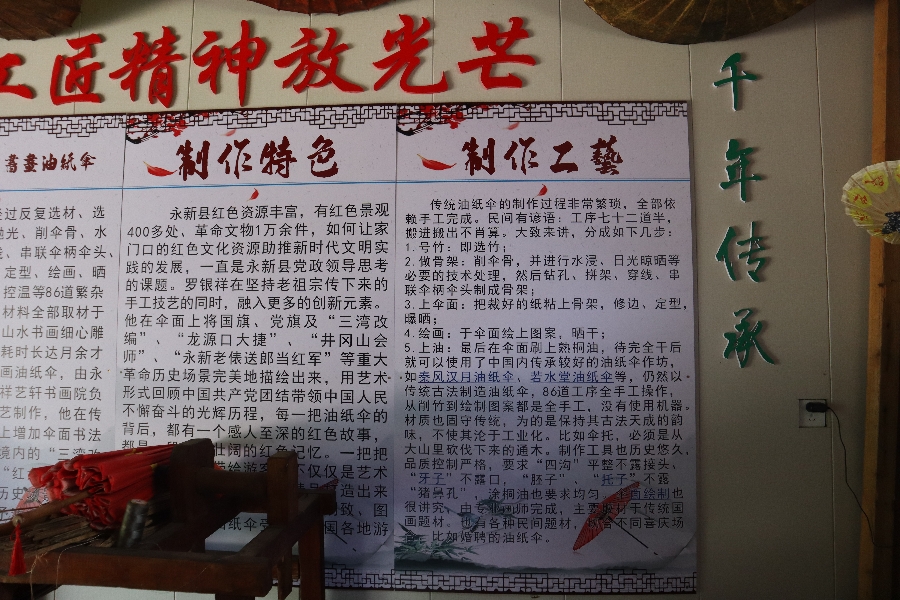 工匠精神放光芒
千年传承
書畫油纸伞
经过反复选材、选
抛光、削伞骨、水
串联伞柄伞头、
定型、绘画、晒
控温等86道繁杂
材料全部取材于
山水书画细心雕
耗时长达月余才
画油纸伞，由永
祥艺轩书画院负
艺制作，他在传
上增加伞面书法
境内的“三湾改
制作特色
永新县红色资源丰富，有红色景观
400多处、革命文物1万余件，如何让家
门口的红色文化资源助推新时代文明实
践的发展，一直是永新县党政领导思考
的课题。罗银祥在坚持老祖宗传下来的
手工技艺的同时，融入更多的创新元素。
他在伞面上将国旗、党旗及“三湾改
编”、“龙源口大捷”、“井冈山会
师”、“永新老俵送郎当红军”等重大
革命历史场景完美地描绘出来，用艺术
形式回顾中国共产党团结带领中国人民
不懈奋斗的光辉历程，每一把油纸伞的
背后，都有一个感人至深的红色故事，
壮阔的红色记忆。一把把
不仅仅是艺术
造出来
致、图
国各地游
制作工藝
传统油纸伞的制作过程非常繁琐，全部依
赖手工完成。民间有谚语：工序七十二道半，
搬进搬出不肖算。大致来讲，分成如下几步：
1.号竹：即选竹；
2.做骨架：削伞骨，并进行水浸、日光晾晒等
必要的技术处理，然后钻孔、拼架、穿线、串
联伞柄伞头制成骨架；
3.上伞面：把裁好的纸粘上骨架，修边，定型，
曝晒；
4.绘画：于伞面绘上图案，晒干；
5.上油：最后在伞面刷上熟桐油，待完全干后
就可以使用了中国内传承较好的油纸伞作坊，
如秦风汉月油纸伞、若水堂油纸伞等，仍然以
传统古法制造油纸伞，86道工序全手工操作，
从削竹到绘制图案都是全手工，没有使用机器。
材质也固守传统，为的是保持其古法天成的韵
味，不使其沦于工业化。比如伞托，必须是从
大山里砍伐下来的通木。制作工具也历史悠久，
品质控制严格，要求“四沟”平整不露接头、
“牙子”不露口，“胚子”、“托子”不露
“猪鼻孔”，涂桐油也要求均匀。伞面绘制也
很讲究，由专业画师完成，主要取材于传统国
画题材。也有各种民间题材，契合不同喜庆场
合，比如婚聘的油纸伞。